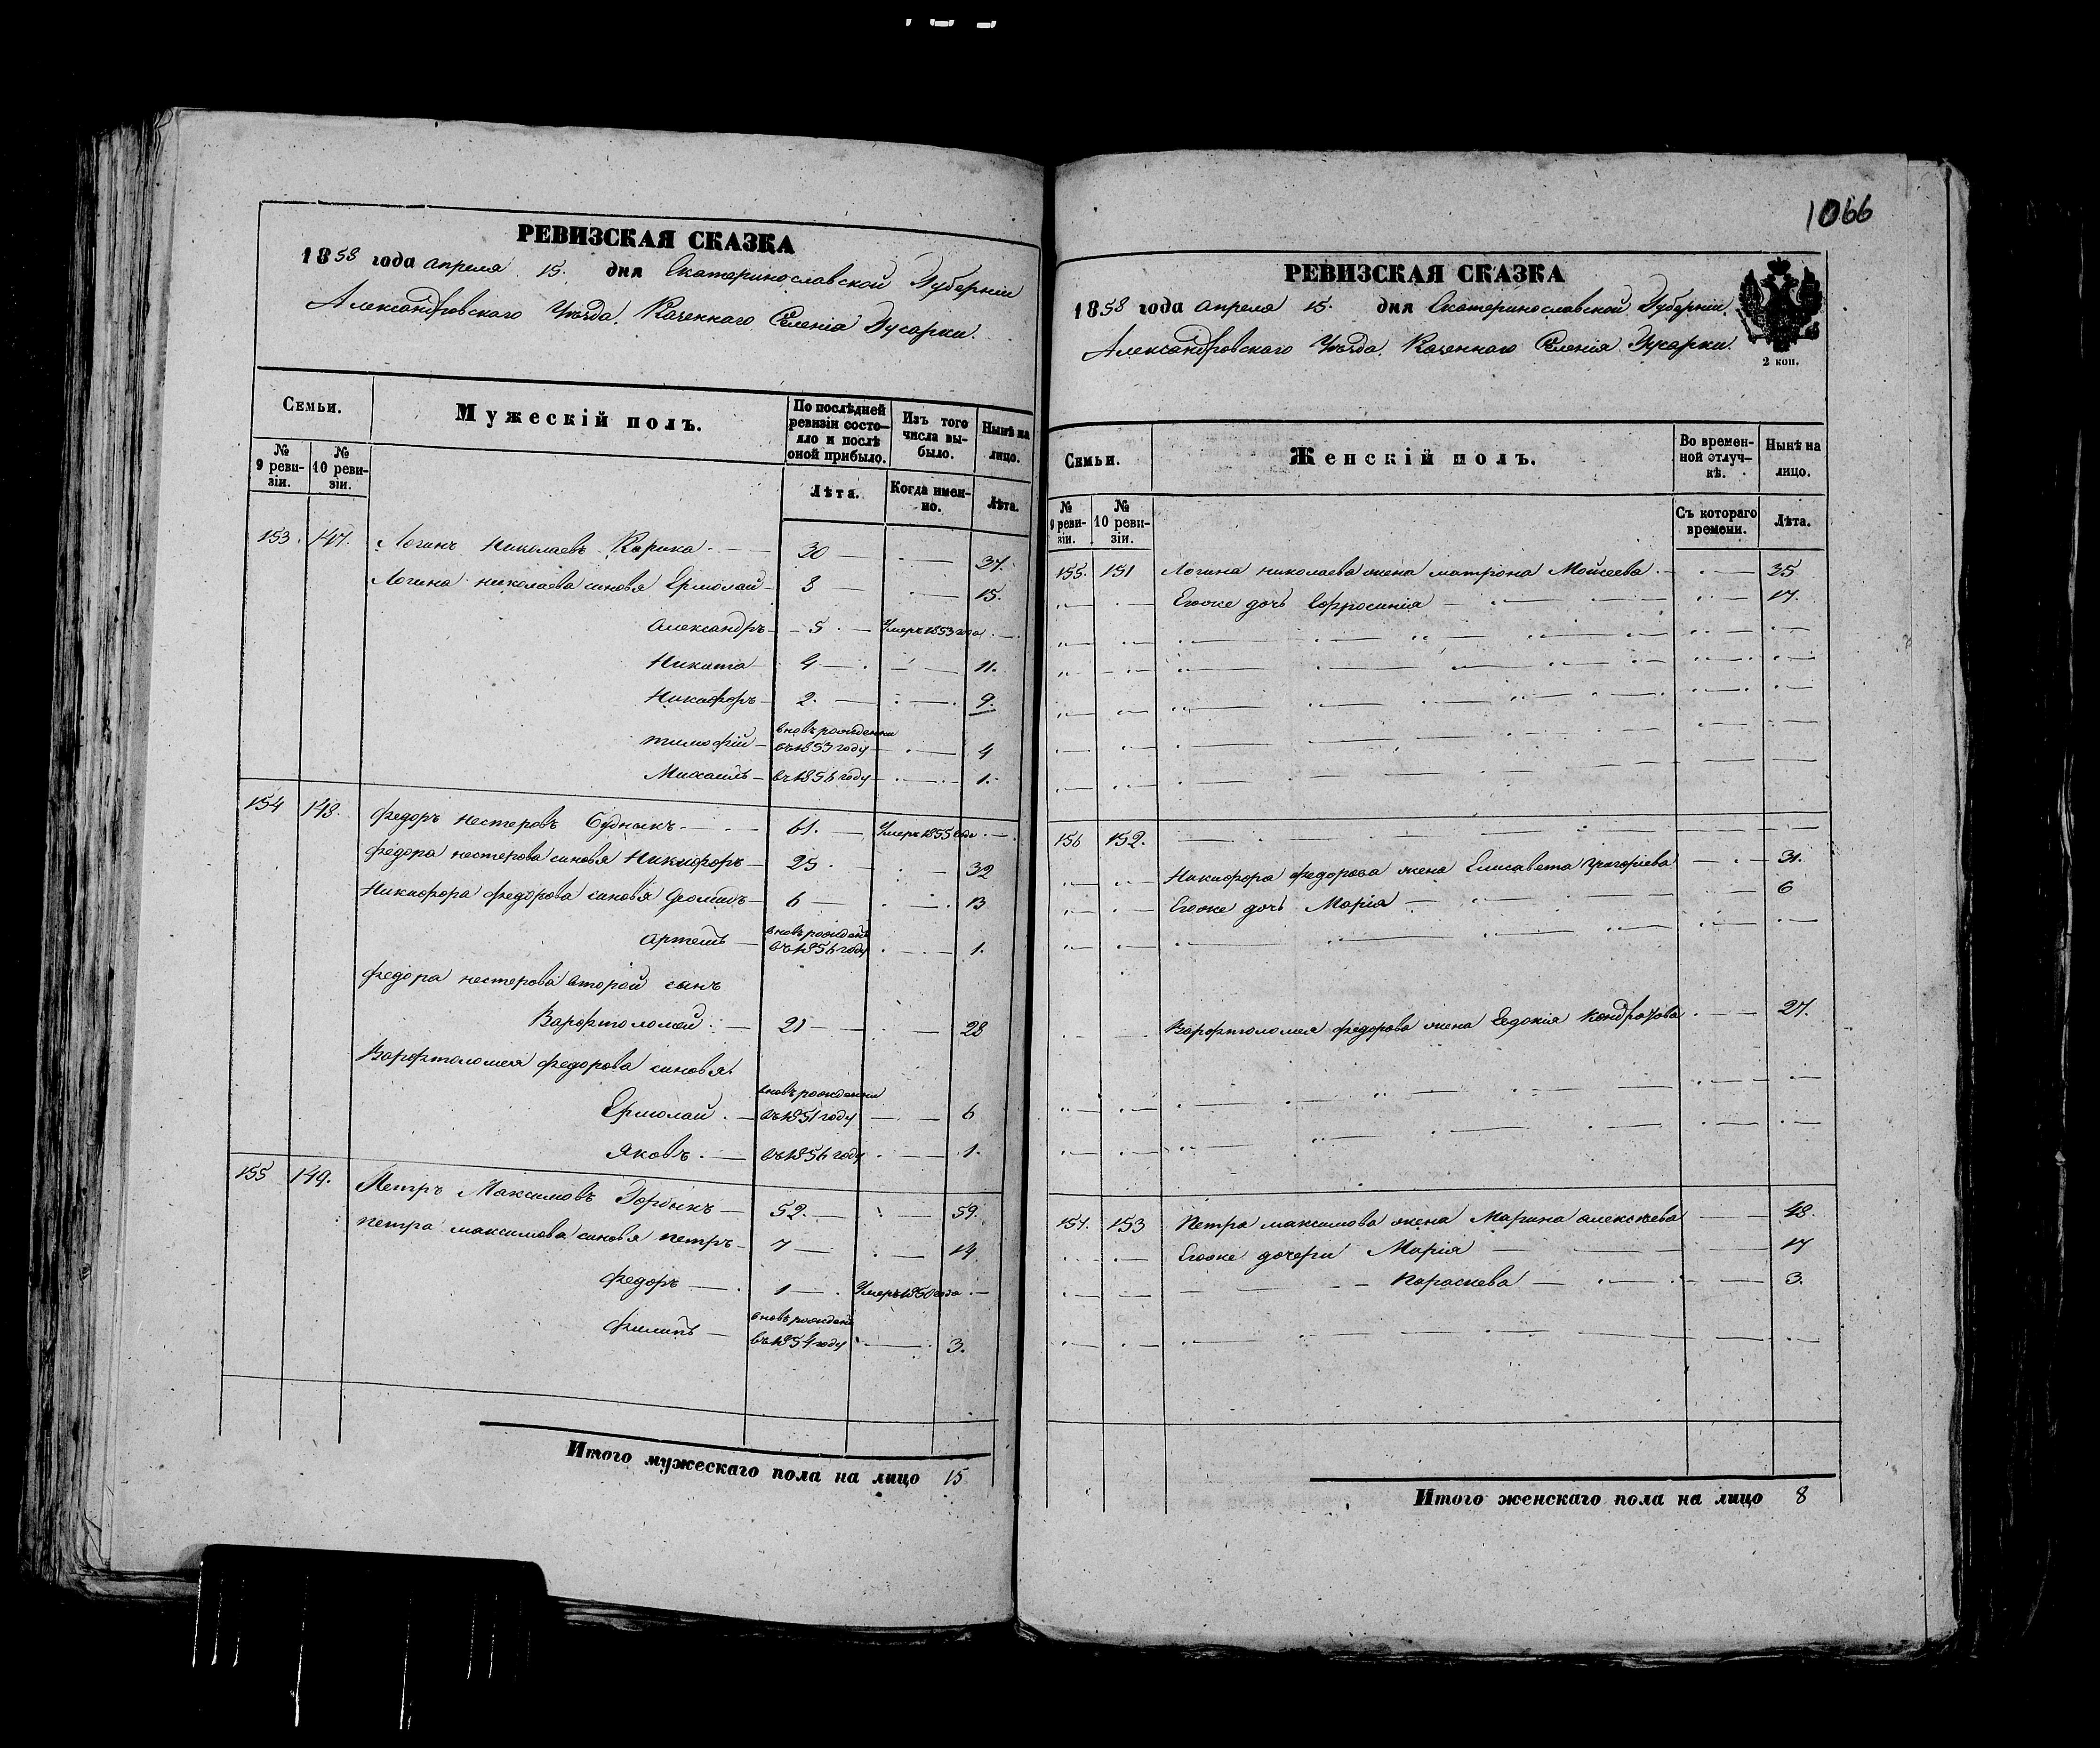 1066
РЕВИЗСКАЯ СКАЗКА
1858 года апреля 15. дня Екатеринославской Губерніи
Александровскаго Уѣзда, Казеннаго Селенія Гусарки.
Семьи.
Мужескій полъ.
По послѣдней ревизіи состояло и послѣ оной прибыло.
Изъ того числа выбыло.
Нынѣ на лицо.
№ 9 ревизіи.
№ 10 ревизіи.
Лѣта.
Когда именно.
Лѣта.
153. 147. Логинъ Николаевъ Корика 30 37.
Логина николаева синовя Ермолай 8 15.
Александръ 5 Умеръ 1853 года
Никита 4 11.
Никифоръ 2. 9.
вновь рожденни
тимофій въ 1853 году 4
Михаилъ въ 1856 году 1.
154 148. Федоръ нестеровъ 61. Умеръ 1855 года
Федора нестерова синовя Никифоръ 25 32
Никифора федорова синовя 6 13
вновь рожденъ
Артемъ въ 1856 году 1.
Федора нестерова второй сынъ
Варфтоломей 21 28
Варфтоломея федорова синовя
вновь рожденни
Ермолай въ 1851 году 6
Яковъ въ 1856 году 1.
155 149. Петръ Максимовъ 52. 59.
Петра максимова синовя петръ 7 14
Федоръ 1 Умеръ 1850 года
вновь рожденъ
Филипъ въ 1854 году 3.
Итого мужескаго пола на лицо 15
РЕВИЗСКАЯ СКАЗКА
1858 года апреля 15. дня Екатеринославской Губерніи
Александровскаго Уѣзда, Казеннаго Селенія Гусарки.
2 коп.
Семьи.
Женскій полъ.
Во временной отлучкѣ.
Нынѣ на лицо.
№ 9 ревизіи.
№ 10 ревизіи.
Съ котораго времени.
Лѣта.
155. 151 Логина николаева жена матрона Мойсеева 35
Егоже дочь Ефросинія 17.
156 152.
Никифора федорова жена Елисавета Григоріева 31.
Егоже дочь Марія 6
Варфтоломея федорова жена Евдокія Кондратова 27.
157. 153 Петра максимова жена Марина алексѣева 48.
Егоже дочери Марія 17
Параскева 3.
Итого женскаго пола на лицо 8